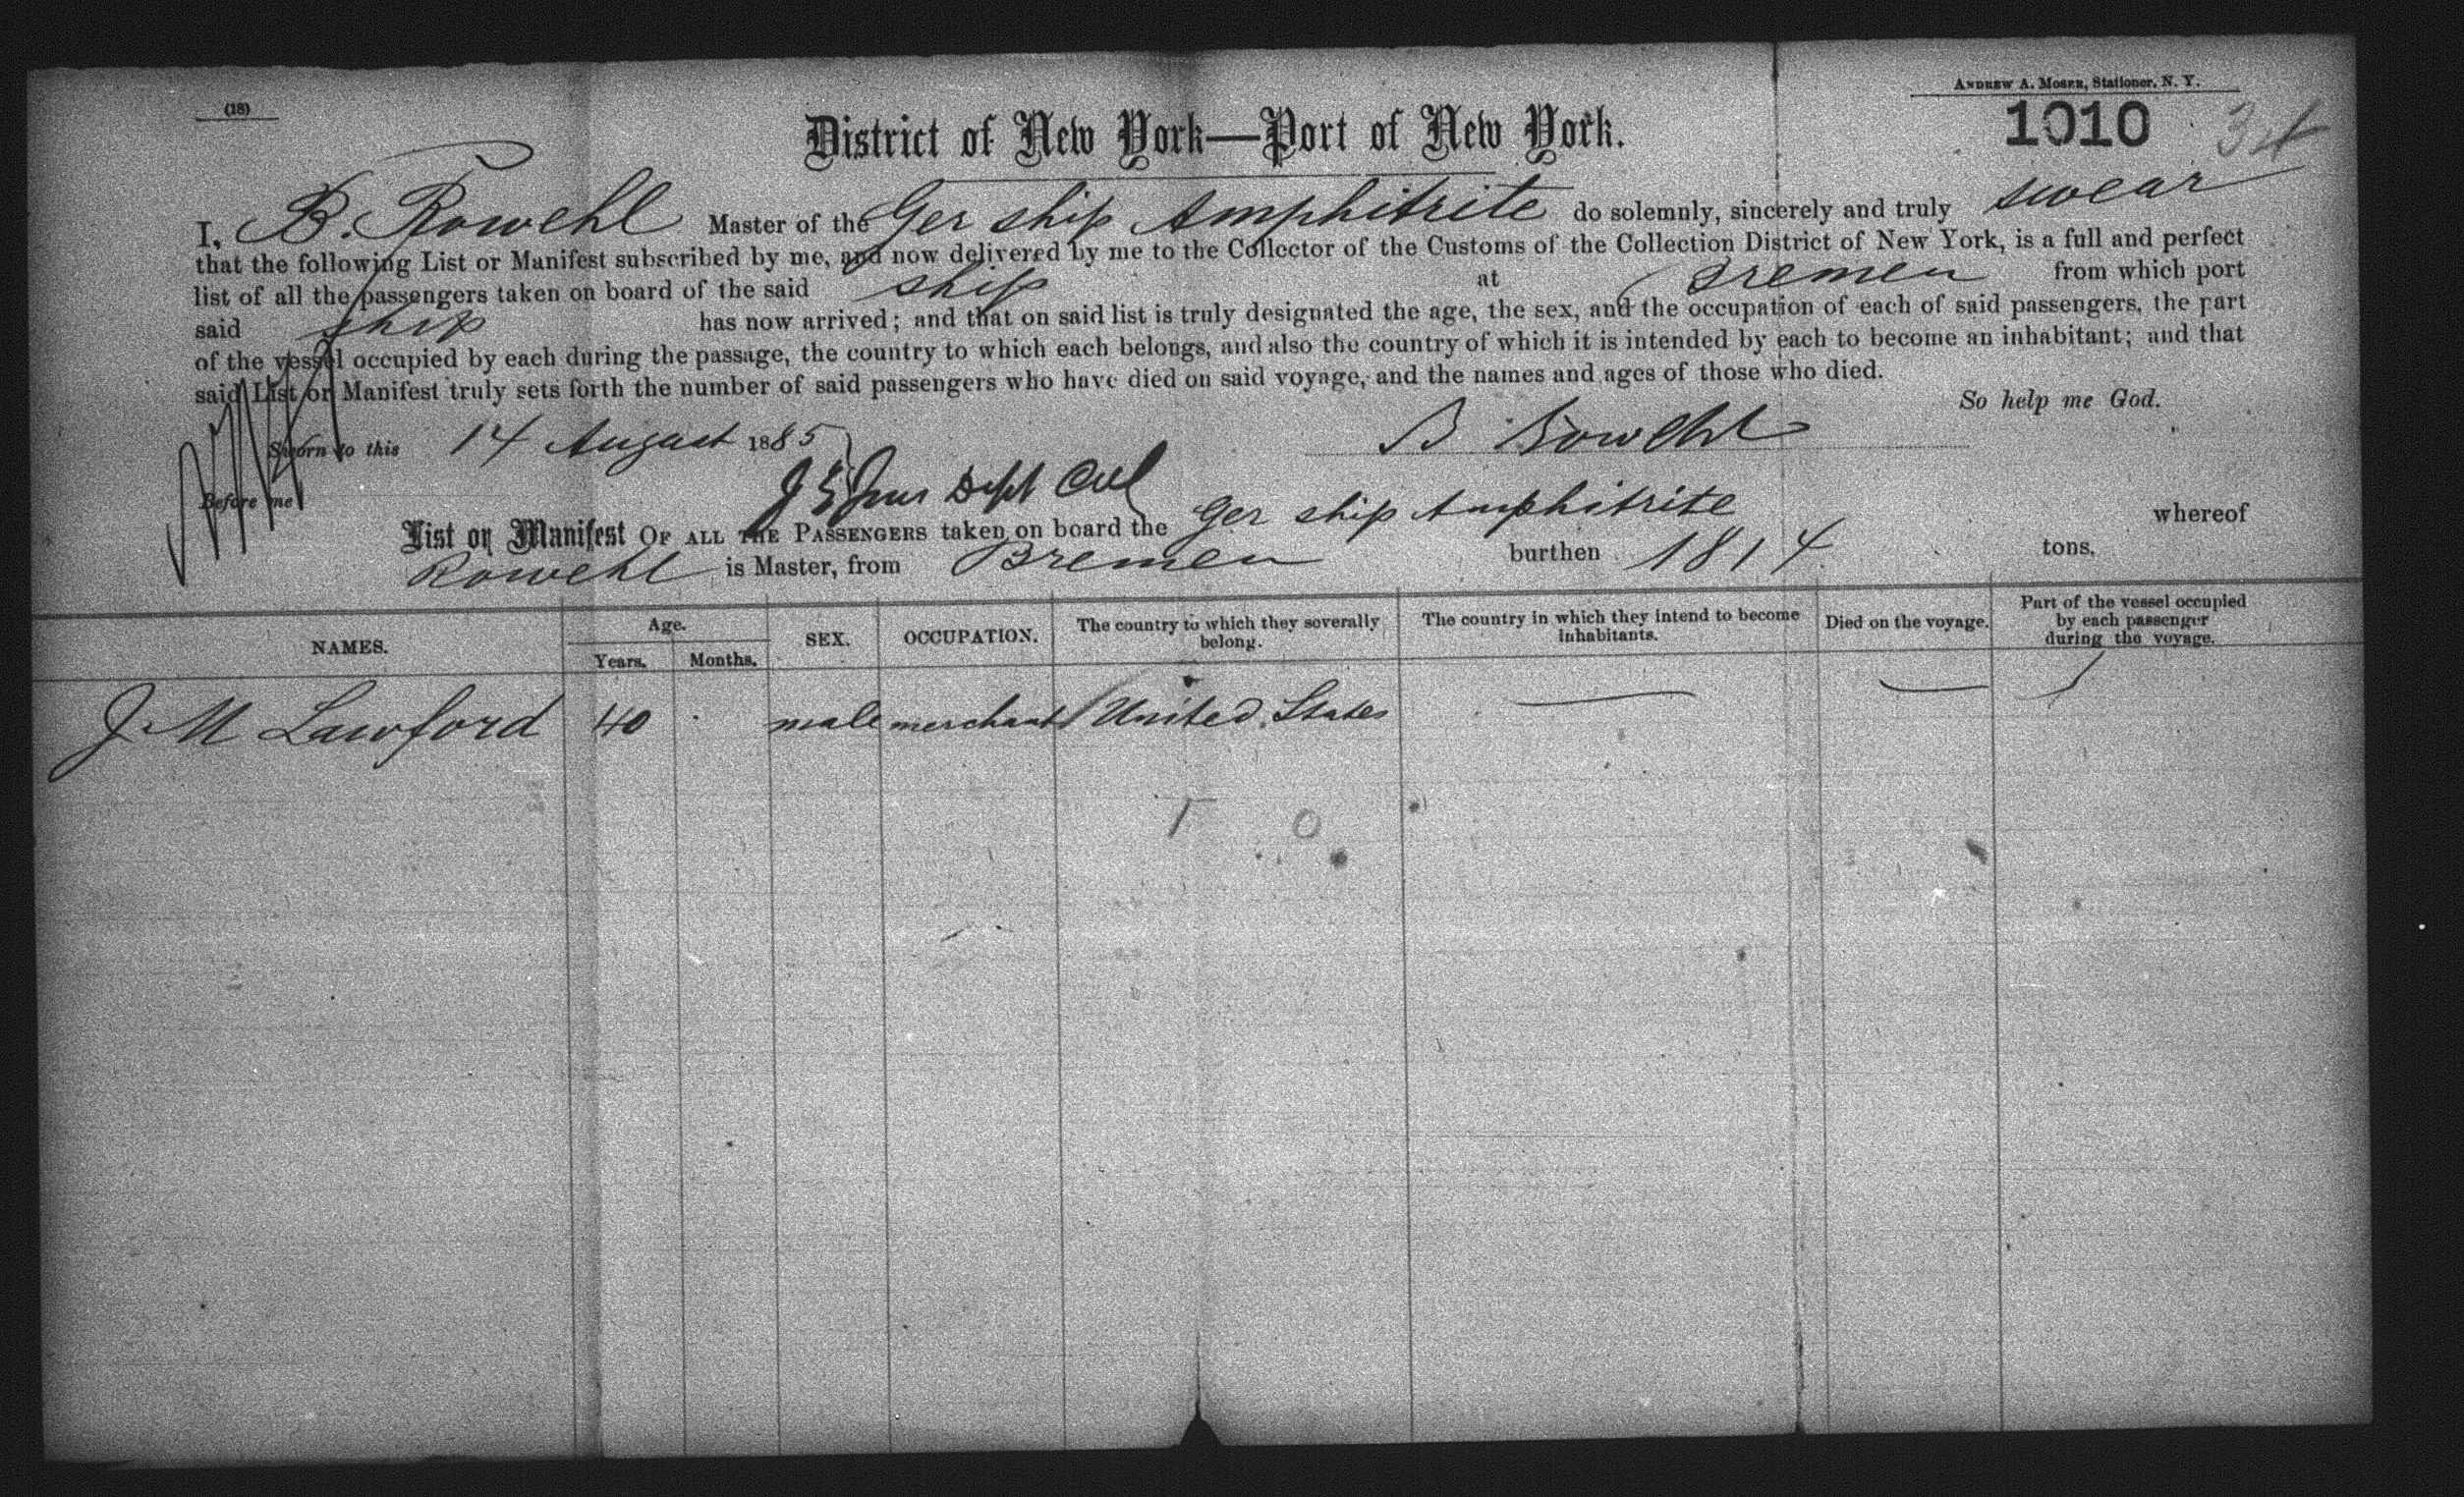 (18)
ANDREW A. MOSER, Stationer, N. Y.
1010
District of New York—Port of New York.
I, B. Rowehl Master of the Ger ship Amphitrite do solemnly, sincerely and truly swear
that the following List or Manifest subscribed by me, and now delivered by me to the Collector of the Customs of the Collection District of New York, is a full and perfect
list of all the passengers taken on board of the said ship at Bremen from which port
said ship has now arrived; and that on said list is truly designated the age, the sex, and the occupation of each of said passengers, the part
of the vessel occupied by each during the passage, the country to which each belongs, and also the country of which it is intended by each to become an inhabitant; and that
said List or Manifest truly sets forth the number of said passengers who have died on said voyage, and the names and ages of those who died.
So help me God.
Sworn to this 14 August 1885 B Rowehl
Before me
List or Manifest OF ALL THE PASSENGERS taken on board the Ger ship Amphitrite whereof
Rowehl is Master, from Bremen burthen 1814 tons.
NAMES. Age. Years. Months. SEX. OCCUPATION. The country to which they severally belong. The country in which they intend to become inhabitants. Died on the voyage. Part of the vessel occupied by each passenger during the voyage.
J. M Lawford 40 male merchant United States
1 0